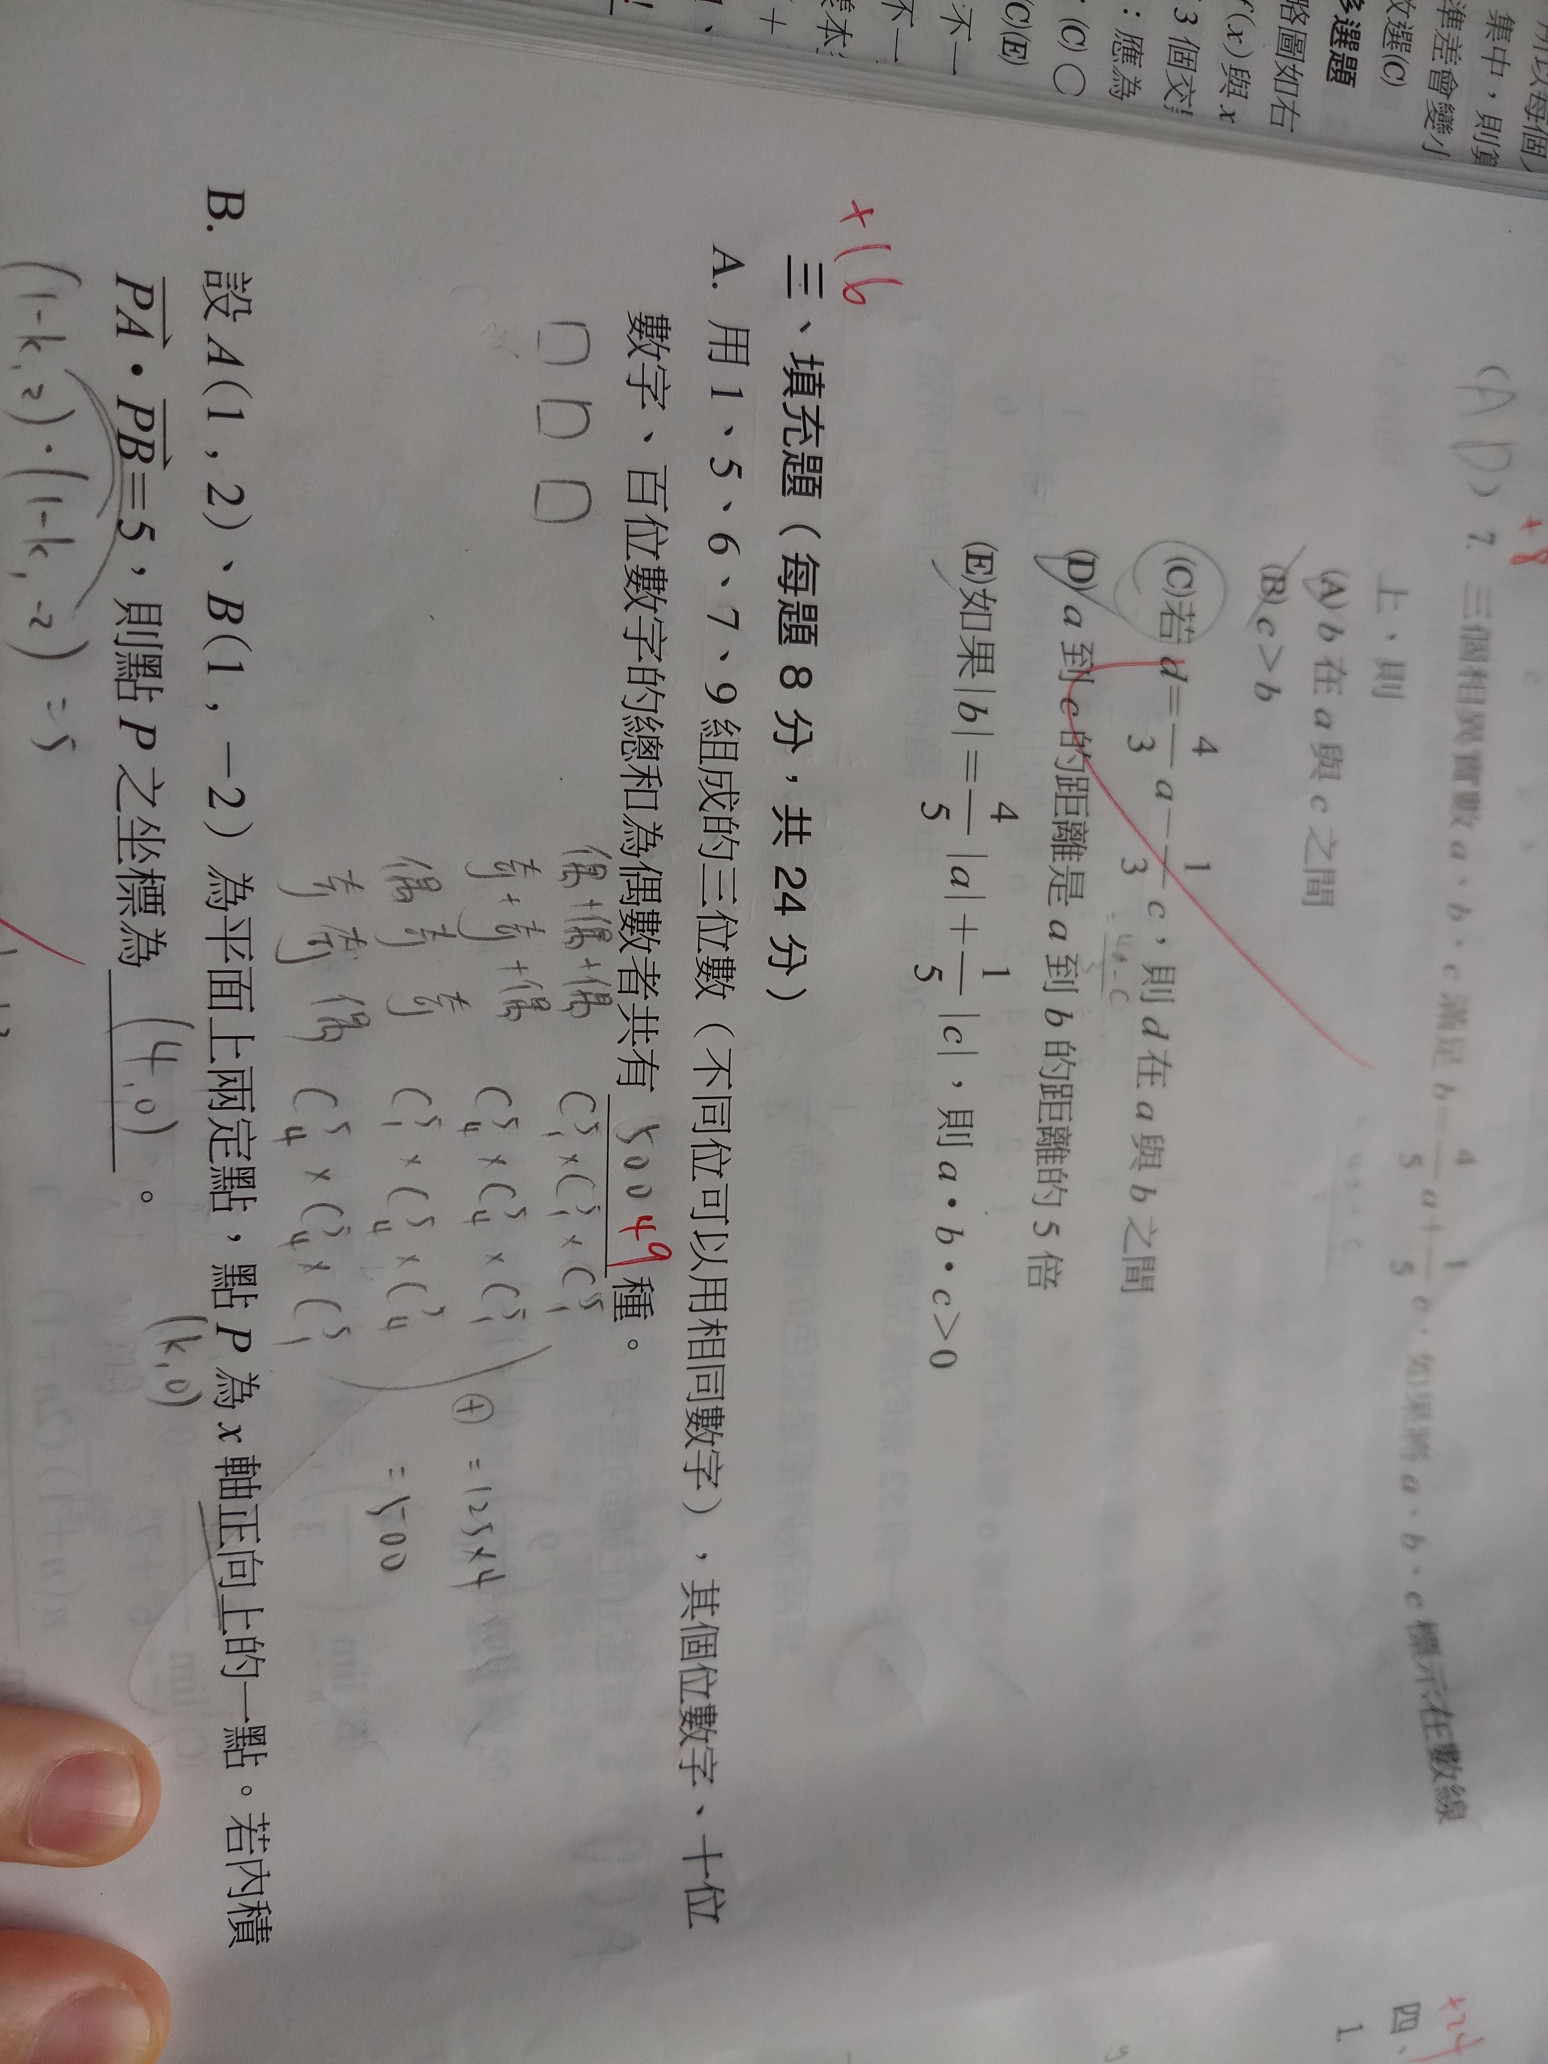 所以每個
集中，則
準差會變小
故選(C)
多選題
略圖如右
f(x)與x
3個交
：應為
(C)○
(C)(E)
不一
不一
樣本
+8
(AD) 7. 三個相異實數a、b、c滿足b=4/5 a+1/5 c，如果將a、b、c標示在數線
上，則
(A) b在a與c之間
(B) c>b
(C)若d=4/3 a-1/3 c，則d在a與b之間
(D) a到c的距離是a到b的距離的5倍
(E)如果|b|=4/5 |a|+1/5 |c|，則a·b·c>0
+16
三、填充題（每題8分，共24分）
A. 用1、5、6、7、9組成的三位數（不同位可以用相同數字），其個位數字、十位
數字、百位數字的總和為偶數者共有 500 49 種。
偶+偶+偶 C⁵₁×C⁵₁×C⁵₁
奇+奇+偶 C⁵₄×C⁵₄×C⁵₁
偶 奇 奇 C⁵₁×C⁵₄×C⁵₄
奇 偶 C⁵₄×C⁵₄×C⁵₁
⊕ =125×4
=500
B. 設A(1，2)、B(1，-2)為平面上兩定點，點P為x軸正向上的一點。若內積
(k,0)
PA·PB=5，則點P之坐標為 (4,0) 。
(1-k,2)·(1-k,-2)=5
+24
四、
1.